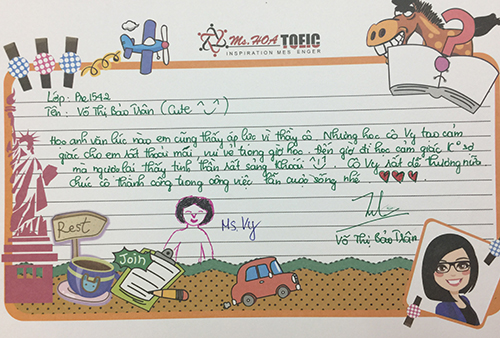 Ms. HOA TOEIC
INSPIRATION MESSENGER
Lớp: Pre 1542
Tên: Võ Thị Bảo Trân (Cute ^‿^)
Học anh văn lúc nào em cũng thấy áp lực vì thầy cô. Nhưng học cô Vy tạo cảm
giác cho em rất thoải mái, vui vẻ trong giờ học. Đến giờ đi học cảm giác k° sợ
mà ngược lại thấy tinh thần rất sảng khoái ^‿^. Cô Vy rất dễ thương nữa
chúc cô thành công trong công việc lẫn cuộc sống nhé ♥♥♥.
Rest
Ms. Vy
Join
Võ Thị Bảo Trân